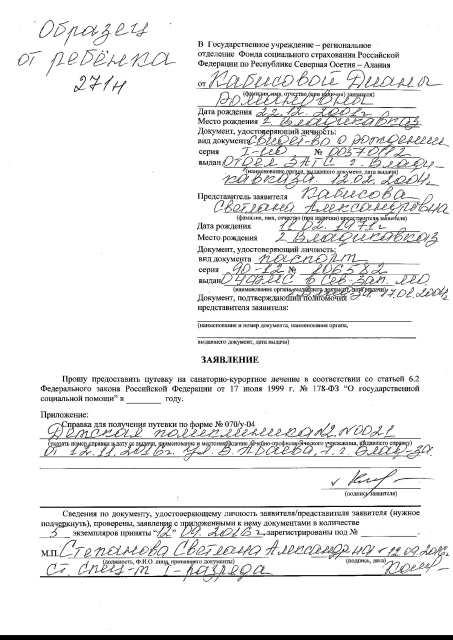 Образец
от ребёнка
271н
В Государственное учреждение – региональное
отделение Фонда социального страхования Российской
Федерации по Республике Северная Осетия – Алания
от Кабисовой Дианы
(фамилия, имя, отчество (при наличии) заявителя)
Дата рождения 22.12.
Место рождения г Владикавказ
Документ, удостоверяющий личность:
вид документа о рождении
серия №
выдан Отдел ЗАГС г. Влади-
кавказа. 12.02.
(наименование органа, выдавшего документ, дата выдачи)
Представитель заявителя Кабисова
Светлана Александровна
(фамилия, имя, отчество (при наличии) представителя заявителя)
Дата рождения 11.02.1971г
Место рождения г Владикавказ
Документ, удостоверяющий личность:
вид документа паспорт
серия 90-12 № 206582
выдан
(наименование органа, выдавшего документ, дата выдачи)
Документ, подтверждающий полномочия
представителя заявителя:
(наименование и номер документа, наименования органа,
выдавшего документ, дата выдачи)
ЗАЯВЛЕНИЕ
Прошу предоставить путевку на санаторно-курортное лечение в соответствии со статьей 6.2
Федерального закона Российской Федерации от 17 июля 1999 г. № 178-ФЗ "О государственной
социальной помощи" в ________ году.
Приложение:
Справка для получения путевки по форме № 070/у-04
Детская поликлиника №2. №0021
(указать номер справки и дату ее выдачи, наименование и местонахождение лечебно-профилактического учреждения, выдавшего справку)
от 12.11.2016г. ул. В. Абаева, г.
(подпись заявителя)
Сведения по документу, удостоверяющему личность заявителя/представителя заявителя (нужное
подчеркнуть), проверены, заявление с приложенными к нему документами в количестве
5 экземпляров приняты "12" 09. 2016 г., зарегистрированы под №
М.П. Степанова Светлана Александровна 12.09.
(должность, Ф.И.О. лица, принявшего документы) (подпись, дата)
Ст. спец-т I-разряда